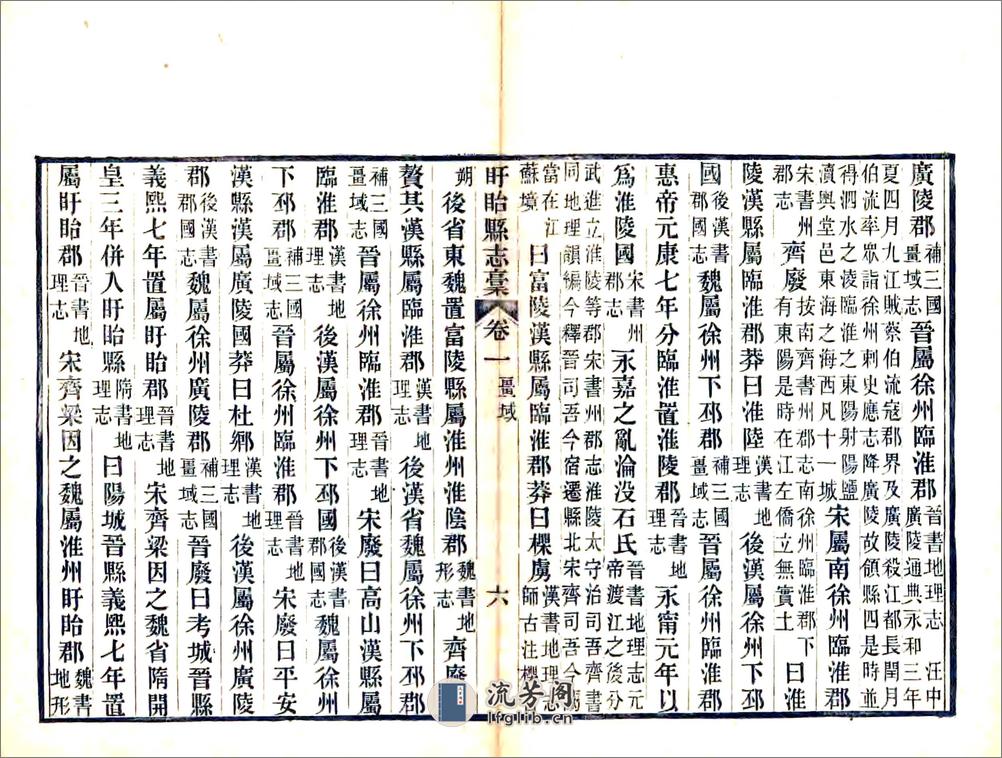 廣陵郡補三國畺域志晉屬徐州臨淮郡晉書地理志 汪中廣陵通典永和三年
夏四月九江賊蔡伯流寇郡界及廣陵殺江都長閏月伯流率眾詣徐州刺史應志降廣陵故領縣四是時並
得泗水之淩臨淮之東陽射陽鹽瀆輿堂邑東海之海西凡十一城宋屬南徐州臨淮郡
宋書州郡志齊廢按南齊書州郡志南徐州臨淮郡下有東陽是時在江左僑立無實土曰淮
陵漢縣屬臨淮郡莽曰淮陸漢書地理志後漢屬徐州下邳
國後漢書郡國志魏屬徐州下邳郡補三國畺域志晉屬徐州臨淮郡
惠帝元康七年分臨淮置淮陵郡晉書地理志永甯元年以
爲淮陵國宋書州郡志永嘉之亂淪没石氏晉書地理志元帝渡江之後分
武進立淮陵等郡宋書州郡志淮陵太守治司吾齊書同地理韻編今釋晉司吾今宿遷縣北宋齊司吾今
當在江蘇境曰富陵漢縣屬臨淮郡莽曰㮯虜漢書地理志師古注㮯
盱眙縣志稾 卷一 畺域 六
朔後省東魏置富陵縣屬淮州淮陰郡魏書地形志齊廢曰
贅其漢縣屬臨淮郡漢書地理志後漢省魏屬徐州下邳郡
補三國畺域志晉屬徐州臨淮郡晉書地理志宋廢曰高山漢縣屬
臨淮郡漢書地理志後漢屬徐州下邳國後漢書郡國志魏屬徐州
下邳郡補三國畺域志晉屬徐州臨淮郡晉書地理志宋廢曰平安
漢縣屬廣陵國莽曰杜鄉漢書地理志後漢屬徐州廣陵
郡後漢書郡國志魏屬徐州廣陵郡補三國畺域志晉廢曰考城晉縣
義熙七年置屬盱眙郡晉書地理志宋齊梁因之魏省隋開
皇三年併入盱眙縣隋書地理志曰陽城晉縣義熙七年置
屬盱眙郡晉書地理志宋齊梁因之魏屬淮州盱眙郡魏書地形
流芳阁
lfglib.cn